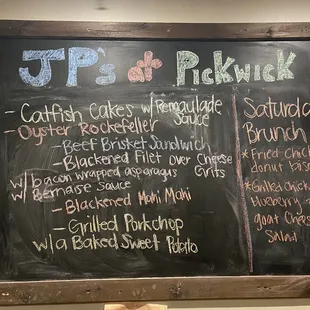 JP's at Pickwick
- Catfish Cakes w/ Remaulade
Sauce
- Oyster Rockefeller
- Beef Brisket Sandwich
- Blackened Filet over Cheese
Grits
w/ bacon wrapped asparagus
w/ Bernaise Sauce
- Blackened Mahi Mahi
- Grilled Porkchop
w/a Baked Sweet Potato
Saturda
Brunch
* Fried Chick
donut
* Grilled Chick
goat Chees
Salad